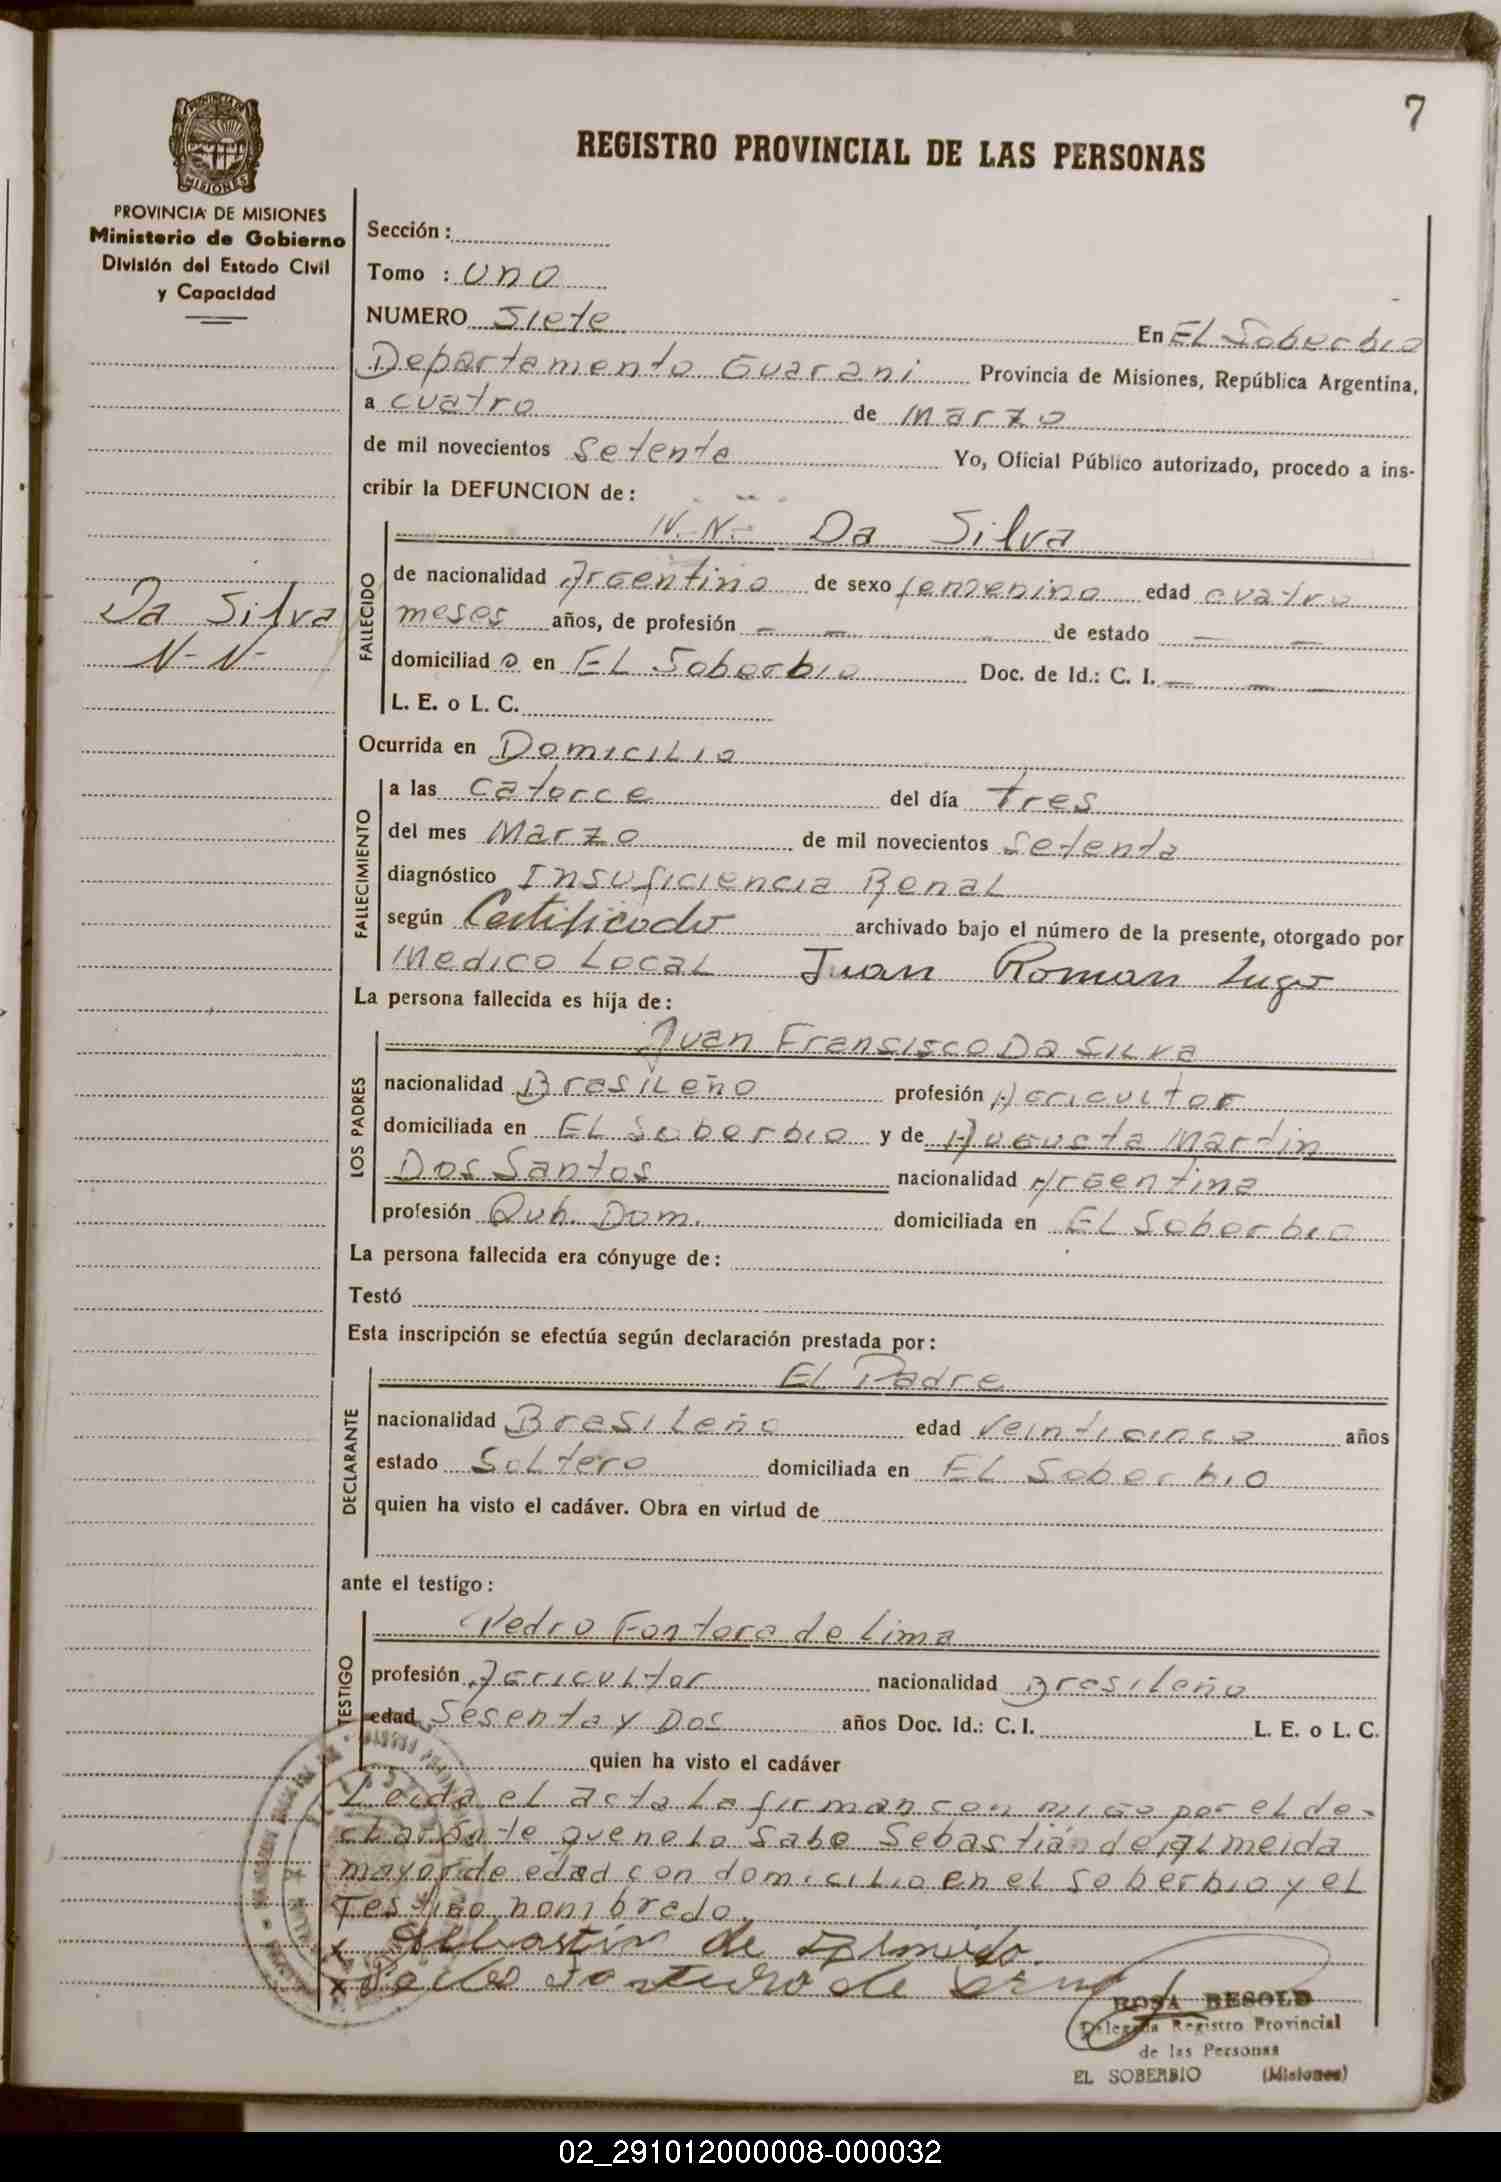 7
REGISTRO PROVINCIAL DE LAS PERSONAS
PROVINCIA DE MISIONES
Ministerio de Gobierno
División del Estado Civil
y Capacidad
Sección:
Tomo : uno
NUMERO Siete En EL Soberbio
Departamento Guarani Provincia de Misiones, República Argentina,
a cuatro de marzo
de mil novecientos setenta Yo, Oficial Público autorizado, procedo a ins-
cribir la DEFUNCION de:
N.N. Da Silva
Da Silva
N- N-
FALLECIDO
de nacionalidad Argentino de sexo femenino edad cuatro
meses años, de profesión — — de estado — —
domiciliad o en EL Soberbio Doc. de Id.: C. I. — — —
L. E. o L. C.
Ocurrida en Domicilio
FALLECIMIENTO
a las catorce del día tres
del mes Marzo de mil novecientos setenta
diagnóstico Insuficiencia Renal
según Certificado archivado bajo el número de la presente, otorgado por
Medico Local Juan Roman Lugo
La persona fallecida es hija de:
LOS PADRES
Juan Fransisco Da Silva
nacionalidad Brasileño profesión Agricultor
domiciliada en EL Soberbio y de Augusta Martin
Dos Santos nacionalidad Argentina
profesión Quh. Dom. domiciliada en EL Soberbio
La persona fallecida era cónyuge de:
Testó
Esta inscripción se efectúa según declaración prestada por:
DECLARANTE
EL Padre
nacionalidad Brasileño edad Veinticinco años
estado Soltero domiciliada en EL Soberbio
quien ha visto el cadáver. Obra en virtud de
ante el testigo:
TESTIGO
Pedro Fontora de Lima
profesión Agricultor nacionalidad Brasileño
edad Sesenta y Dos años Doc. Id.: C. I. L. E. o L. C.
quien ha visto el cadáver
Leida el acta la firman con migo por el de-
clarante que no lo sabe Sebastián de Almeida
mayor de edad con domicilio en el soberbio y el
Testigo nombrado.
x Sebastin de Almeida.
x
ROSA RESOLD
Delegada Registro Provincial
de las Personas
EL SOBERBIO (Misiones)
02_291012000008-000032